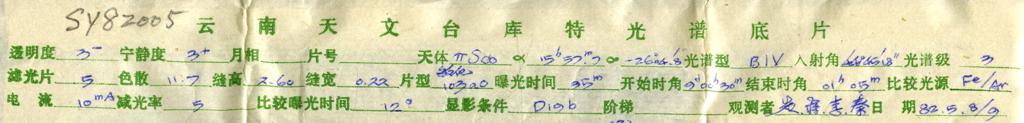 SY82005 云南天文台库特光谱底片
透明度 3⁻ 宁静度 3⁺ 月相 片号 天体 πSco α 15ʰ57ᵐ δ -26°06′.8 光谱型 B1V 入射角 光谱级 3
滤光片 5 色散 11.7 缝高 2.60 缝宽 0.22 片型 103aO 曝光时间 35ᵐ 开始时角 0ʰ30ᵐ 结束时角 01ʰ05ᵐ 比较光源 Fe/Ar
电流 10mA 减光率 5 比较曝光时间 12ˢ 显影条件 D19b 阶梯 观测者 李秦 日期 82.5.8/9